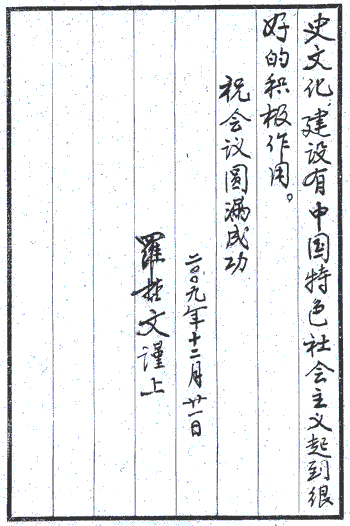 史文化，建设有中国特色社会主义起到很
好的积极作用。
祝会议圆满成功
二〇〇九年十二月廿一日
羅哲文谨上